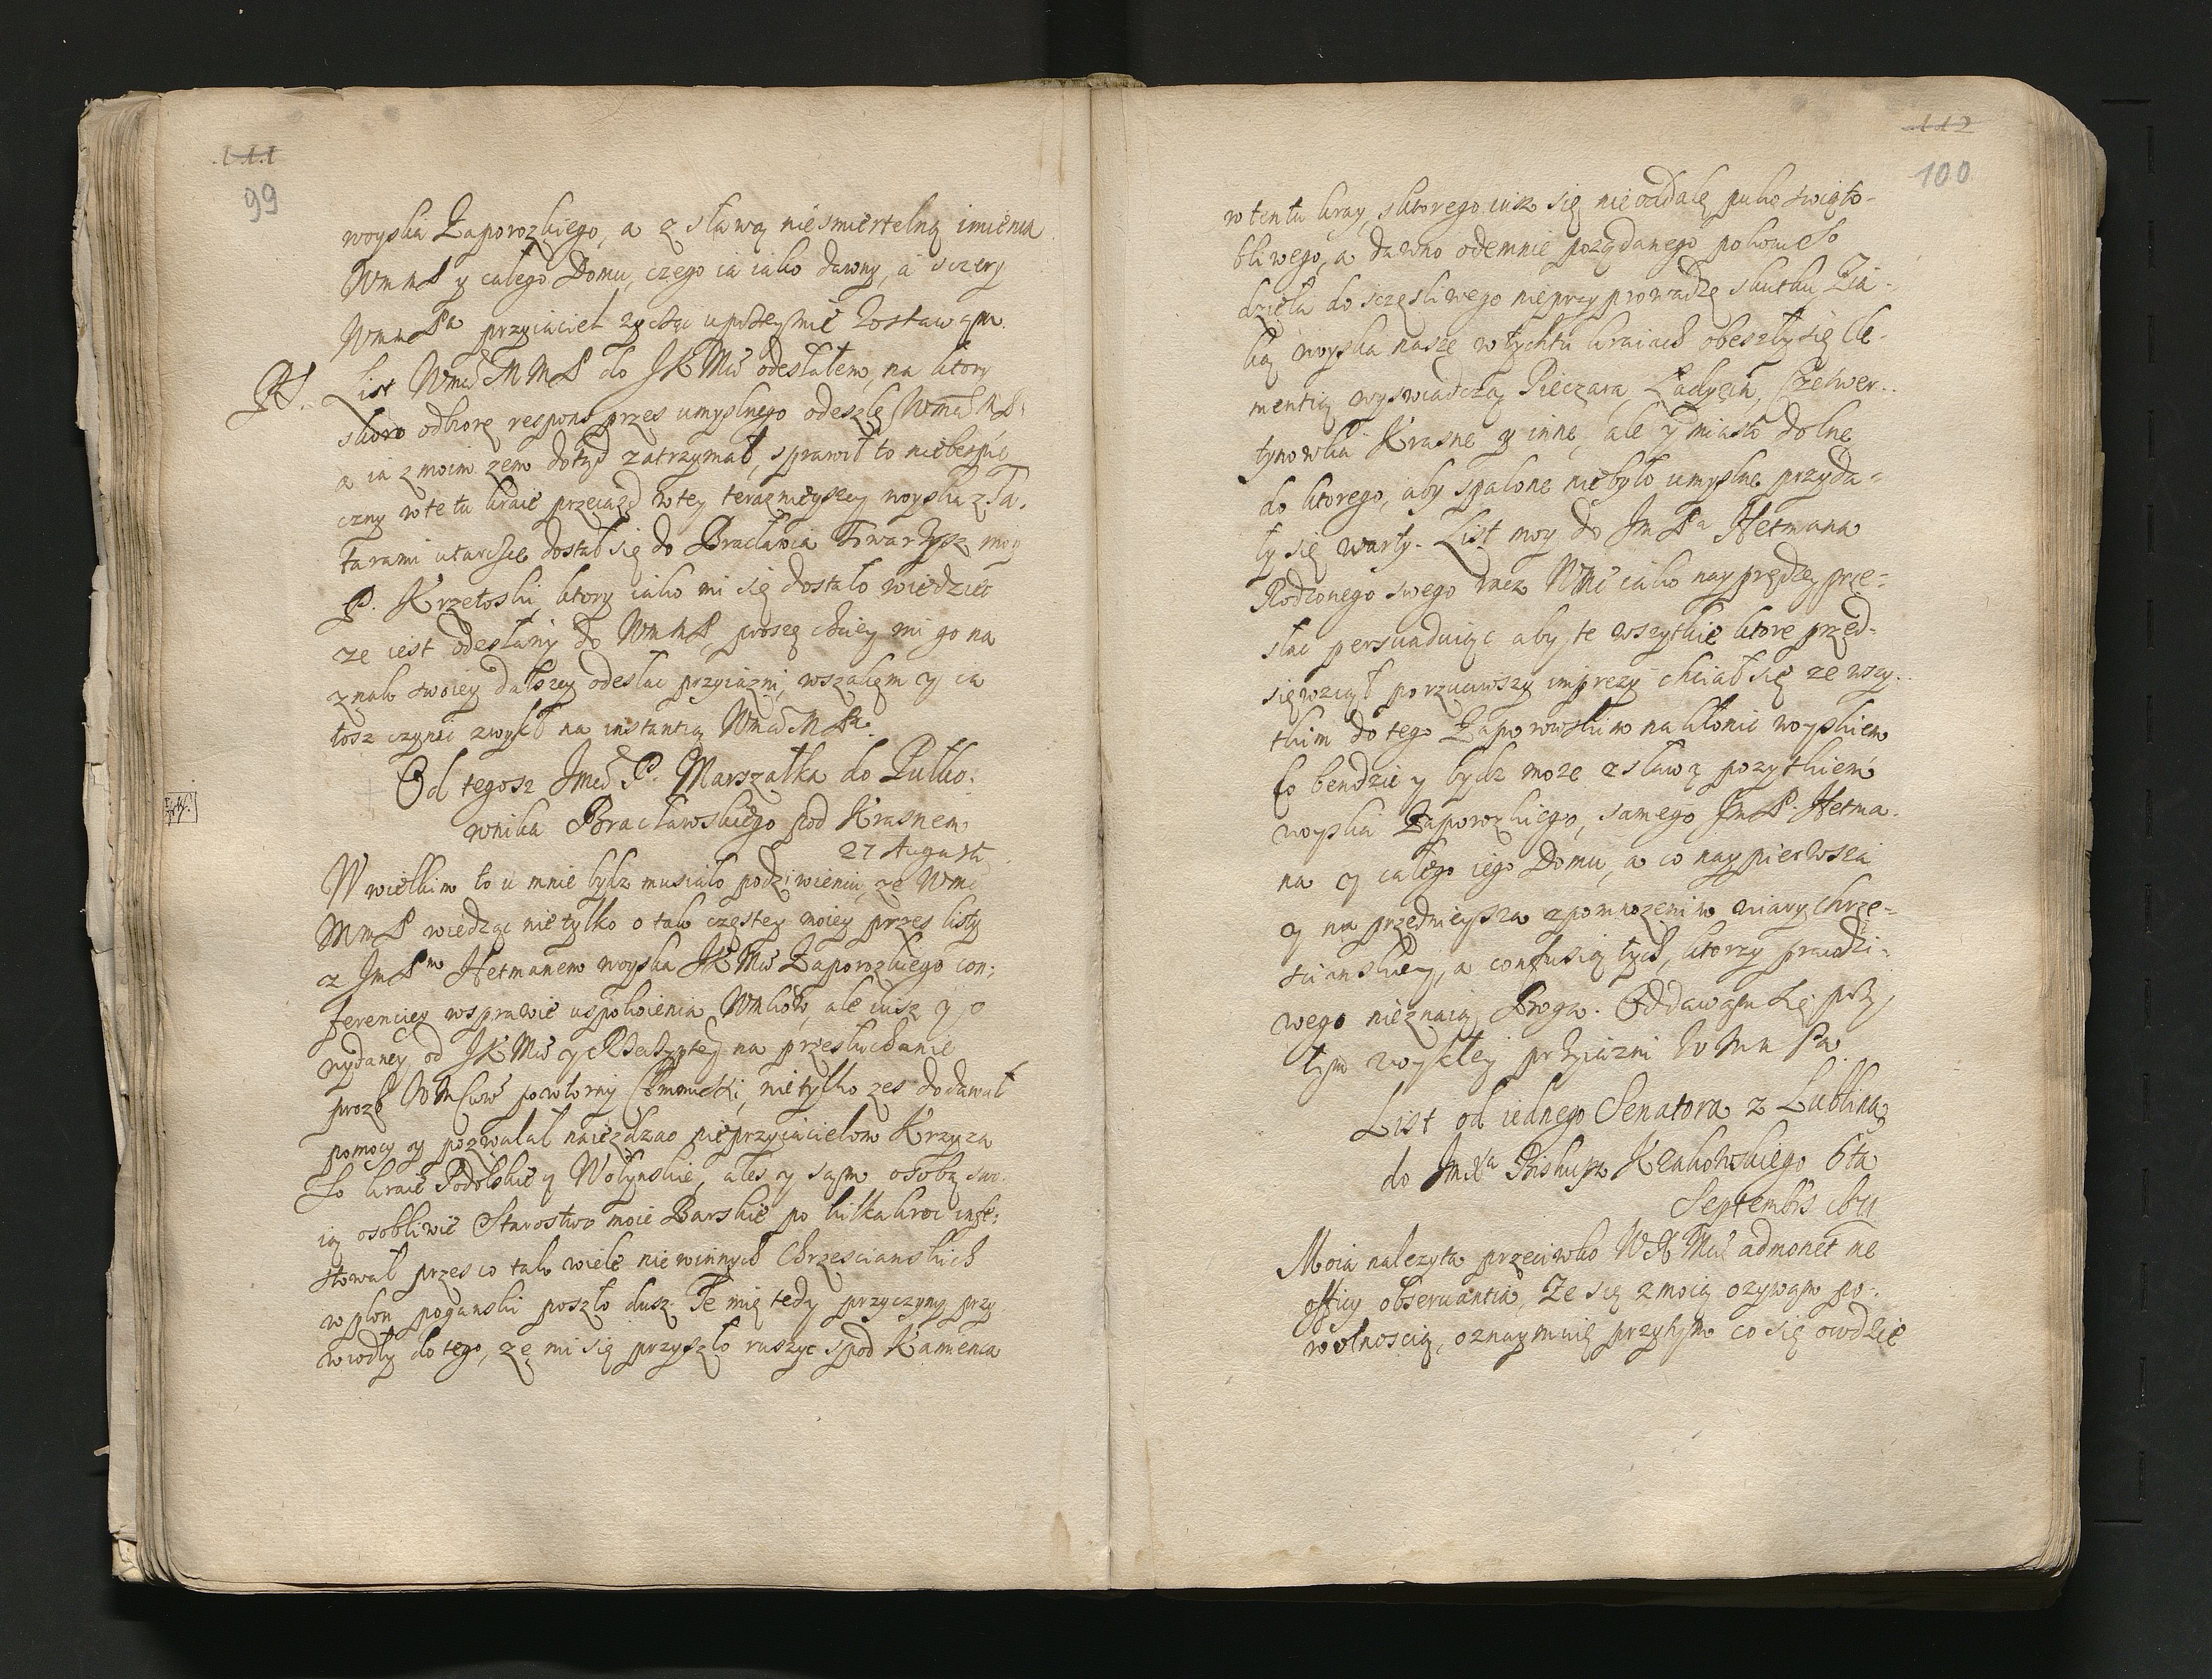 111
99
woyska Zaporozkiego, a z sławą niesmiertelną imienia
WmMP y całego Domu, czego ia iako dawny, a sczery
WmMPa przyiaciel zycząc uprzeymie zostawam.
PS. List WmćMMP do JKMći odesłałem, na ktory
skoro odbiorę respons przez umyslnego odeszlę WmćMP,
a iz moim zem dotyd zatrzymał, sprawił to niebespie
czny w te tu kraie przeiazd w tey teraznieyszey woyska z Ta-
tarami utarczce dostał się do Bracławia Towarzysz moy
P. Krzetoski, ktory iako mi się dostało wiedziec
ze iest odesłany do WmMP, proszę chciey mi go na
znak swoiey dalszey odesłac przyiazni, wszakem y ia
tosz czynic zwykł na instantią WmćMPa.
Od tegosz Jmći P. Marszałka do Pułko-
wnika Bracławskiego pod Krasnem
27 Augusta
W wielkim to u mnie bydz musiało podziwieniu, ze Wmć
MmP wiedząc nie tylko o tak częstey moiey przez listy
z JmPm Hetmanem woyska JKMći Zaporozkiego con-
ferenciey w sprawie uspokoienia, ale iusz y o
wydaney od JKMći y Rzeczyptey na przesłuchanie
prozb powtorny Commissii, nie tylko zes dodawał
pomocy y pozwalał naiezdzac nieprzyiacielom Krzyza
So kraie Podolskie y Wołynskie, ales y sam osobą swo-
ią osobliwie Starostwo moie Barskie po kilkakroc infe-
stował przez co tak wiele niewinnych Chrzescianskich
w plon poganski poszło dusz. Te mię tedy przyczyny przy
wiodły do tego, ze mi się przyszło ruszyc spod Kamienca
112
100
w ten tu kray, s ktorego iusz się nie oddalę puko swięto-
bliwego, a dawno odemnie poządanego pokoiu So
dzieła do sczęsliwego nie przyprowadzę skutku Zia-
ką woyska nasze w tychtu kraiach obeszły się Cle-
mentią wyswiadczą Pieczara, Ładyzin, Czetwer-
tynowka Krasne y inne, ale y miasto dolne
do ktorego, aby spalone nie było umyslne przyda-
ły się warty. List moy do JmPa Hetmana
Rodzonego swego racz Wmć iako nayprędzey prze-
słac persuaduiąc aby te wszytkie ktore przed-
sięwziął porzuciwszy imprezy chciał się ze wszy-
tkim do tego Zaporowskim nakłonic woyskiem
Co bendzie y bydz moze z sławą pozytkiem
woyska Zaporozkiego, samego JmP. Hetma-
na y całego iego Domu, a co naypierwsza
y na przednieysza z pomnozeniem wiary Chrze-
scianskiey, a confusią tych, ktorzy prawdzi-
wego nie znaią Boga. Oddawam się przy
tym zwykłey przyiazni WMMPa.
List od iednego Senatora z Lublina
do JmXa Biskupa Krakowskiego 6ta
Septembris 1671
Moia nalezyta przeciwko WXMći admonet me
officy observantia, Ze się z moią ozywam po-
wolnoscią, oznaymuię przytym co się owdzie